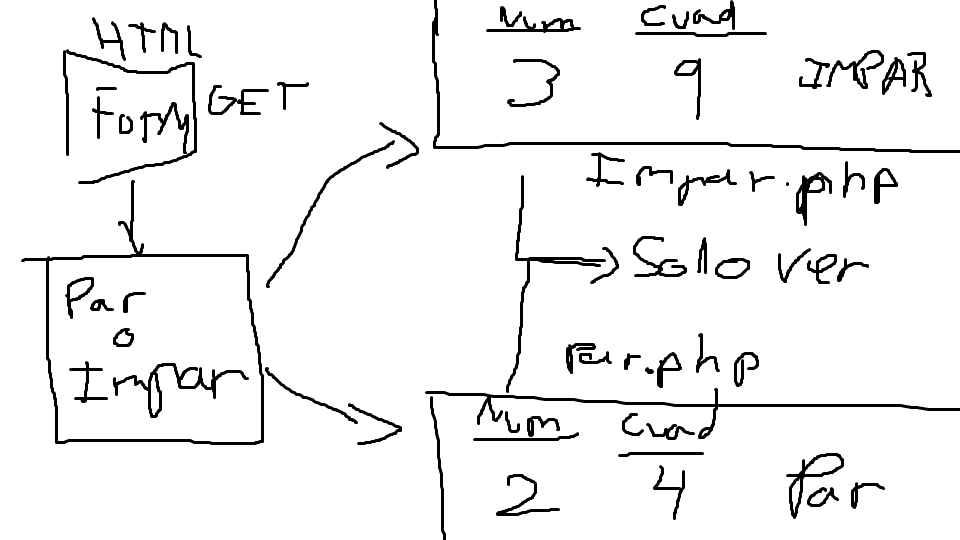 HTML
Form GET
Par
o
Impar
Num Cuad
3 9 IMPAR
Impar.php
Solo ver
Par.php
Num Cuad
2 4 Par